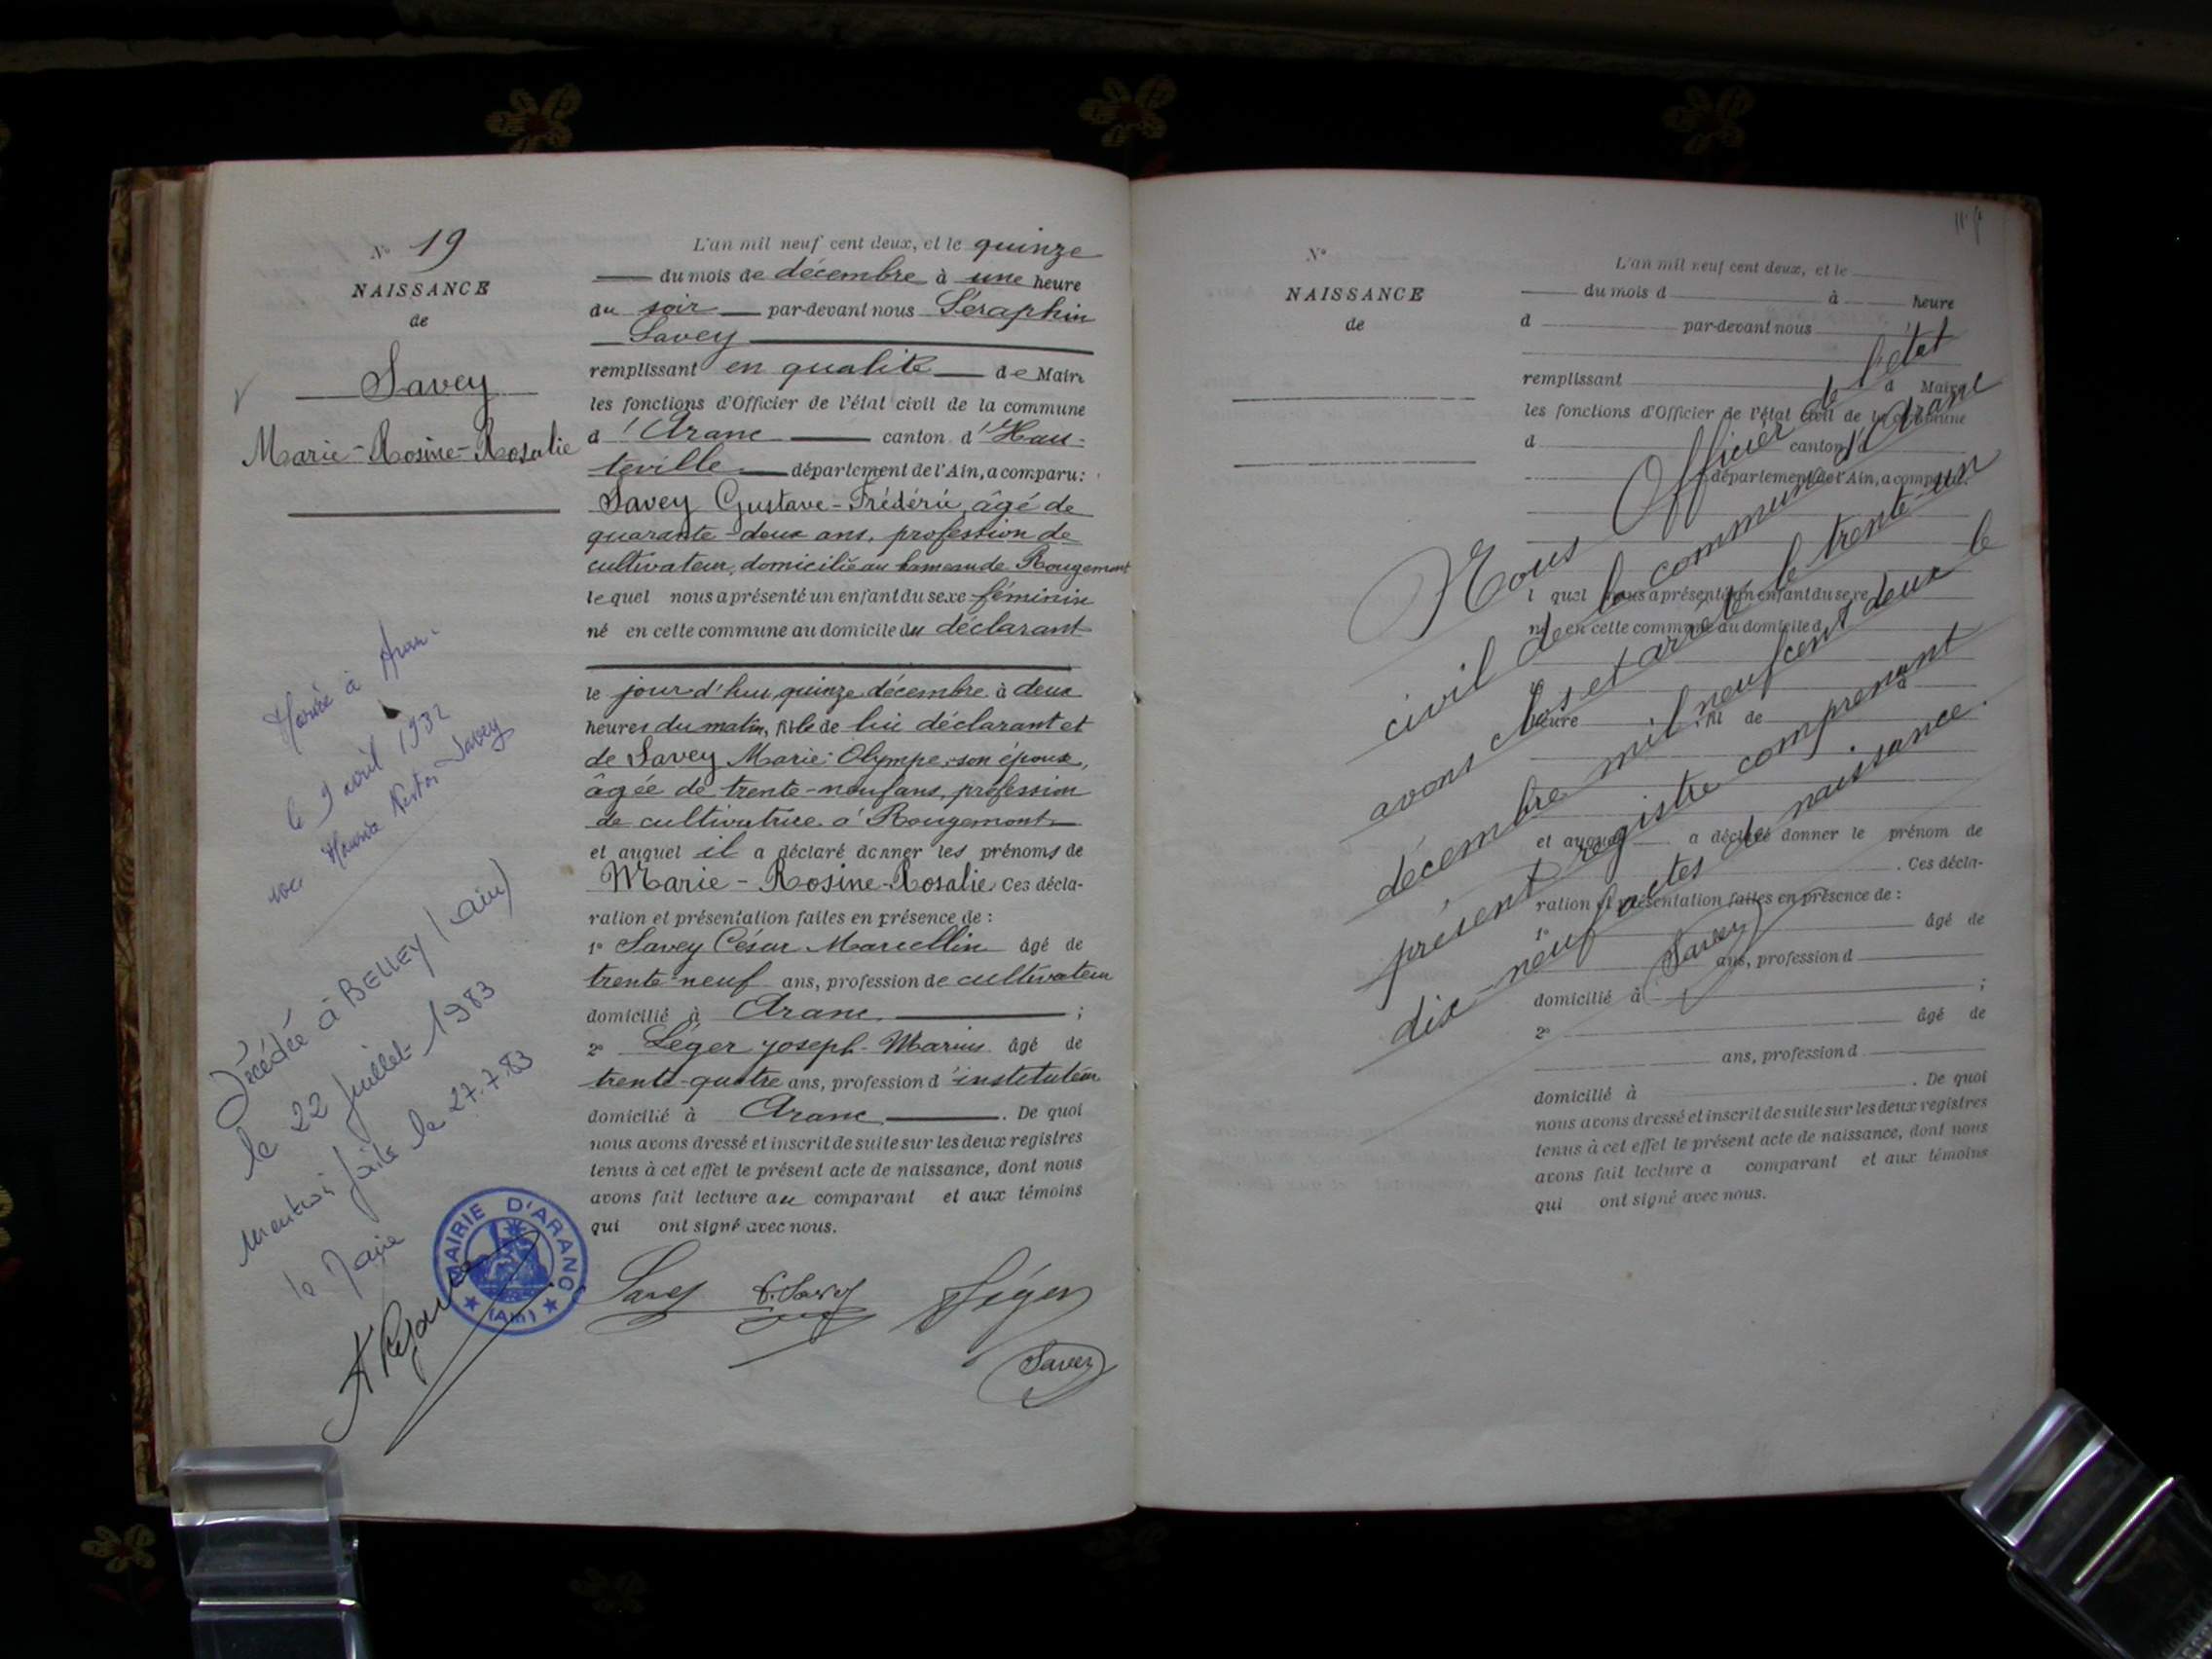 N° 19
NAISSANCE
de
Savey
Marie-Rosine-Rosalie
Mariée à Aranc
le 9 avril 1932
avec Maurice Nestor Savey
Décédée à BELLEY (Ain)
le 22 juillet 1983
mention faite le 27.7.83
le Maire
MAIRIE D'ARANC
(Ain)
L'an mil neuf cent deux, et le quinze
du mois de décembre à une heure
du soir par-devant nous Séraphin
Savey
remplissant en qualité de Maire
les fonctions d'Officier de l'état civil de la commune
d'Aranc canton d'Hau-
teville département de l'Ain, a comparu:
Savey Gustave-Frédéric, âgé de
quarante-deux ans, profession de
cultivateur, domicilié au hameau de Rougemont
lequel nous a présenté un enfant du sexe féminin
né en cette commune au domicile du déclarant
le jour d'hui, quinze décembre à deux
heures du matin, fille de lui déclarant et
de Savey Marie-Olympe, son épouse,
âgée de trente-neuf ans, profession
de cultivatrice à Rougemont
et auquel il a déclaré donner les prénoms de
Marie-Rosine-Rosalie. Ces décla-
ration et présentation faites en présence de :
1° Savey César Marcellin âgé de
trente-neuf ans, profession de cultivateur
domicilié à Aranc ;
2° Léger Joseph-Marius âgé de
trente-quatre ans, profession d'instituteur
domicilié à Aranc . De quoi
nous avons dressé et inscrit de suite sur les deux registres
tenus à cet effet le présent acte de naissance, dont nous
avons fait lecture au comparant et aux témoins
qui ont signé avec nous.
Savey C. Savey Léger
Savey
N°
NAISSANCE
de
L'an mil neuf cent deux, et le
du mois d à heure
d par-devant nous
remplissant d Maire
les fonctions d'Officier de l'état civil de la commune
d canton d
département de l'Ain, a comparu:
l quel nous a présenté un enfant du sexe
né en cette commune au domicile d
l à
heure , fil de
et auquel a déclaré donner le prénom de
. Ces décla-
ration et présentation faites en présence de :
1° âgé de
ans, profession d
domicilié à ;
2° âgé de
ans, profession d
domicilié à . De quoi
nous avons dressé et inscrit de suite sur les deux registres
tenus à cet effet le présent acte de naissance, dont nous
avons fait lecture a comparant et aux témoins
qui ont signé avec nous.
Nous Officier de l'état
civil de la commune d'Aranc
avons clos et arrêté le trente-un
décembre mil neuf cent deux le
présent registre comprenant
dix-neuf actes de naissance.
Savey